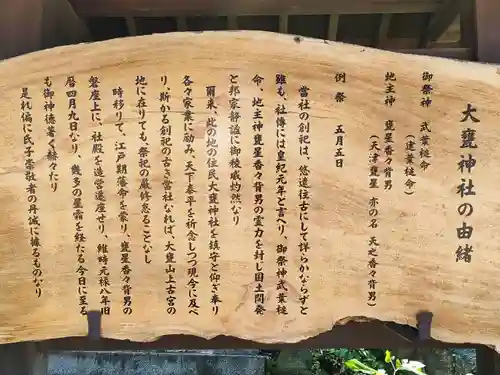 大甕神社の由緒
御祭神　武葉槌命
（建葉槌命）
地主神　甕星香々背男
（天津甕星　亦の名　天之香々背男）
例祭　五月五日
当社の創祀は、悠遠往古にして詳らかならずと
雖も、社傳には皇紀元年と言へり。御祭神武葉槌
命、地主神甕星香々背男の霊力を封し国土開発
と邦家靜謐に御稜威灼然なり
爾来、此の地の住民大甕神社を鎮守と仰ぎ奉り
各々家業に励み、天下泰平を祈念しつつ現今に及べ
り。斯かる創祀の古き當社なれば、大甕山上古宮の
地に在りても、祭祀の厳修怠ることなし
時移りて、江戸期藩命を蒙り、甕星香々背男の
磐座上に、社殿を造営遷座せり、維時元禄八年旧
暦四月九日なり、幾多の星霜を経たる今日に至る
も御神徳著く赫々たり
是れ偏に氏子崇敬者の丹誠に據るものなり